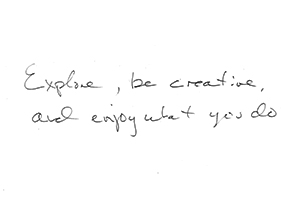 Explore, be creative,
and enjoy what you do